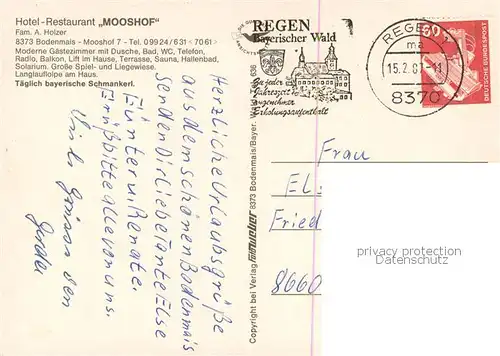 Hotel-Restaurant „MOOSHOF"
Fam. A. Holzer
8373 Bodenmais - Mooshof 7 - Tel. 09924/631 <7061>
Moderne Gästezimmer mit Dusche, Bad, WC, Telefon,
Radio, Balkon, Lift im Hause, Terrasse, Sauna, Hallenbad,
Solarium. Große Spiel- und Liegewiese.
Langlaufloipe am Haus.
Täglich bayerische Schmankerl.
Herzliche Urlaubsgrüße
aus dem schönen Bodenmais
senden Dir liebe Tante Else
Günter u. Renate.
Grüß bitte alle von uns.
Copyright bei Verlag 8373 Bodenmais/Bayer. W
636
REGEN
Bayerischer Wald
Zu jeder
Jahreszeit
angenehmer
Erholungsaufenthalt
REGEN 1
ma
15.2.8 -11
8370
60
DEUTSCHE BUNDESPOST
Frau
El
Fried
8660
privacy protection
Datenschutz